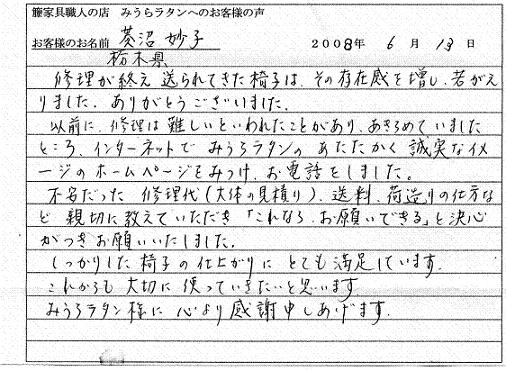 籐家具職人の店　みうらラタンへのお客様の声
お客様のお名前　菱沼 妙子　2008年 6月 13日
栃木県
修理が終え 送られてきた椅子は、その存在感を増し、若がえ
りました。ありがとうございました。
以前に、修理は難しいといわれたことがあり、あきらめていました
ところ、インターネットで みうらラタンの あたたかく 誠実なイメ
ージのホームページをみつけ、お電話をしました。
不安だった 修理代(大体の見積り)、送料、荷造りの仕方な
ど 親切に教えていただき 「これなら、お願いできる」と決心
がつき お願いいたしました。
しっかりした 椅子の 仕上がりに とても 満足しています。
これからも 大切に 使っていきたいと思います
みうらラタン様に 心より 感謝申しあげます.